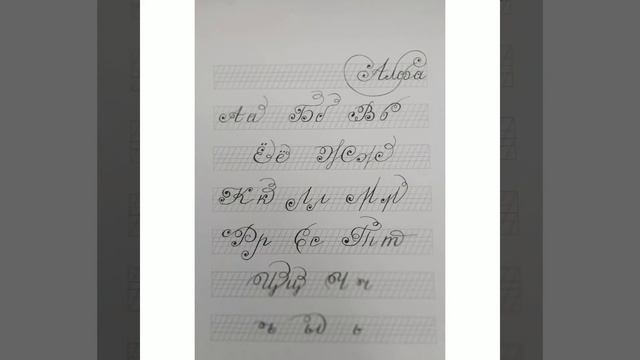 Аа Бб Вв
Ёё Жж
Кк Лл Мм
Рр Сс Тт
Цц Чч
ъ ы ь